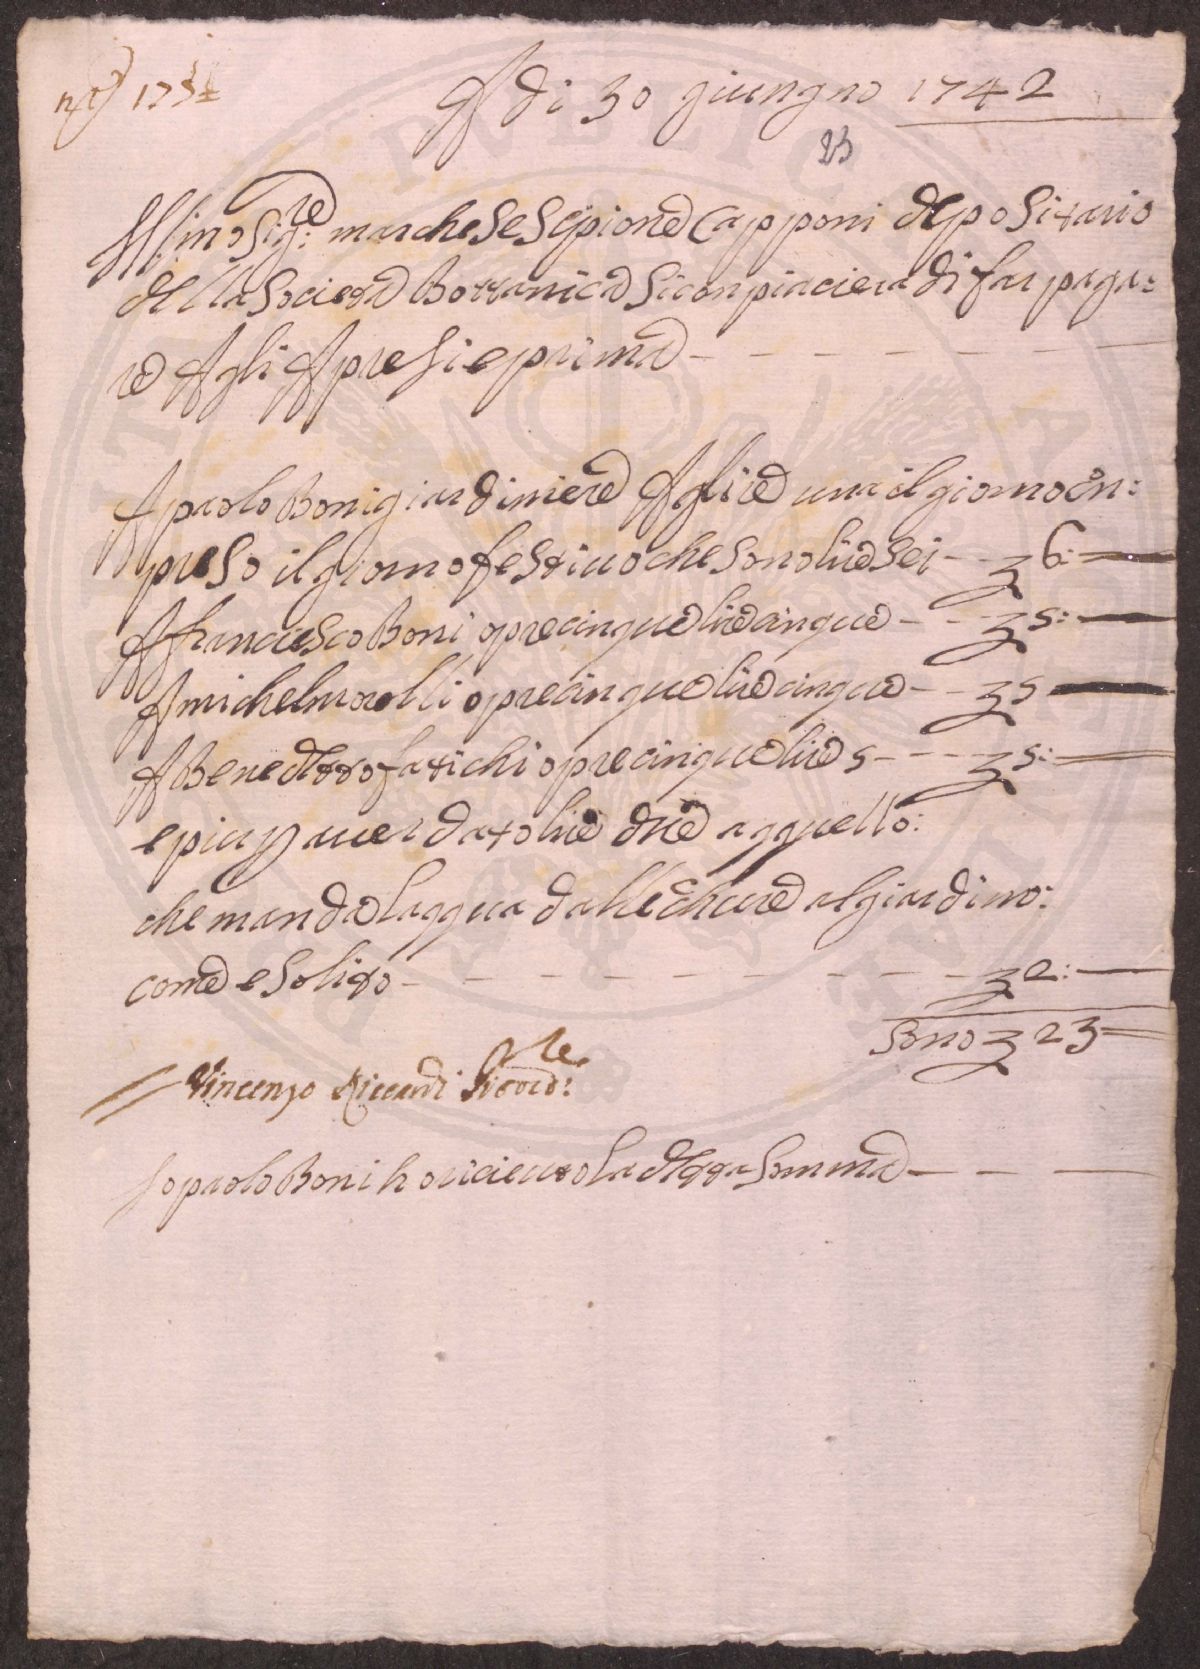 A di 30 giungno 1742
23
Ill.mo Sig.re marchese Scipione Capponi depositario
della Società Bottanica si conpiaciera di far paga:
re Agli Apresi e prima
A paolo Boni giardiniere A lire una il giorno con:
preso il giorno festiuo che sono lire sei 6:
A franciesco Boni opre cinque lire cinque 5:
A michel morelli opre cinque lire cinque 5
A Benedetto fatichi opre cinque lire 5 5:
e piu p auer dato lire due a qquello:
che manda laqqua dalle chiaue al giardino:
come e solito 2:
Sono 23
Vincenzo Riccardi Sicard:
Io paolo Boni ho riceuuto la detta somma